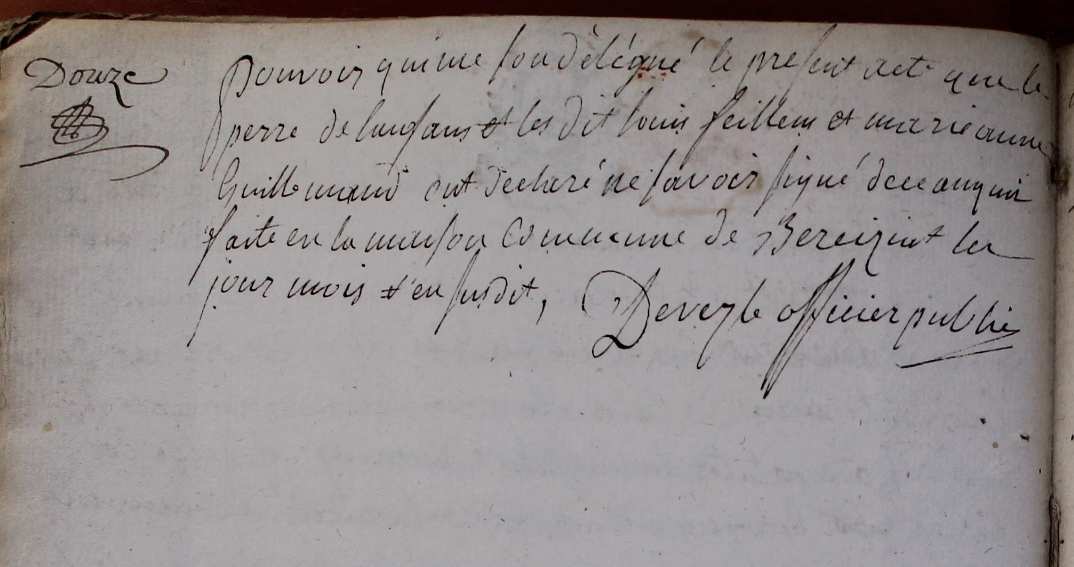 Douze
pouvoir qui me son délégué le present acte que le
perre de lenfans et les dit louis feillens et marie anne
Guillemand ont declaré ne savoir signé de ce anquis
faite en la maison commune de Bereizint les
jour mois et en susdit,
Deveyle officier public